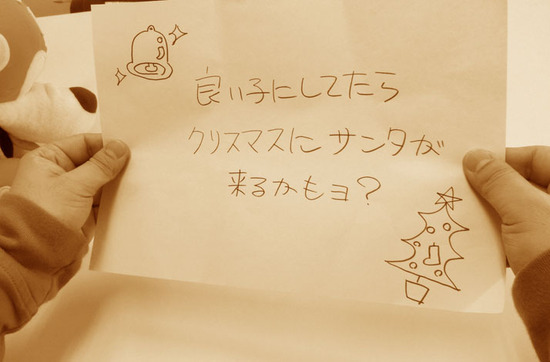 良い子にしてたら
クリスマスにサンタが
来るかもヨ?